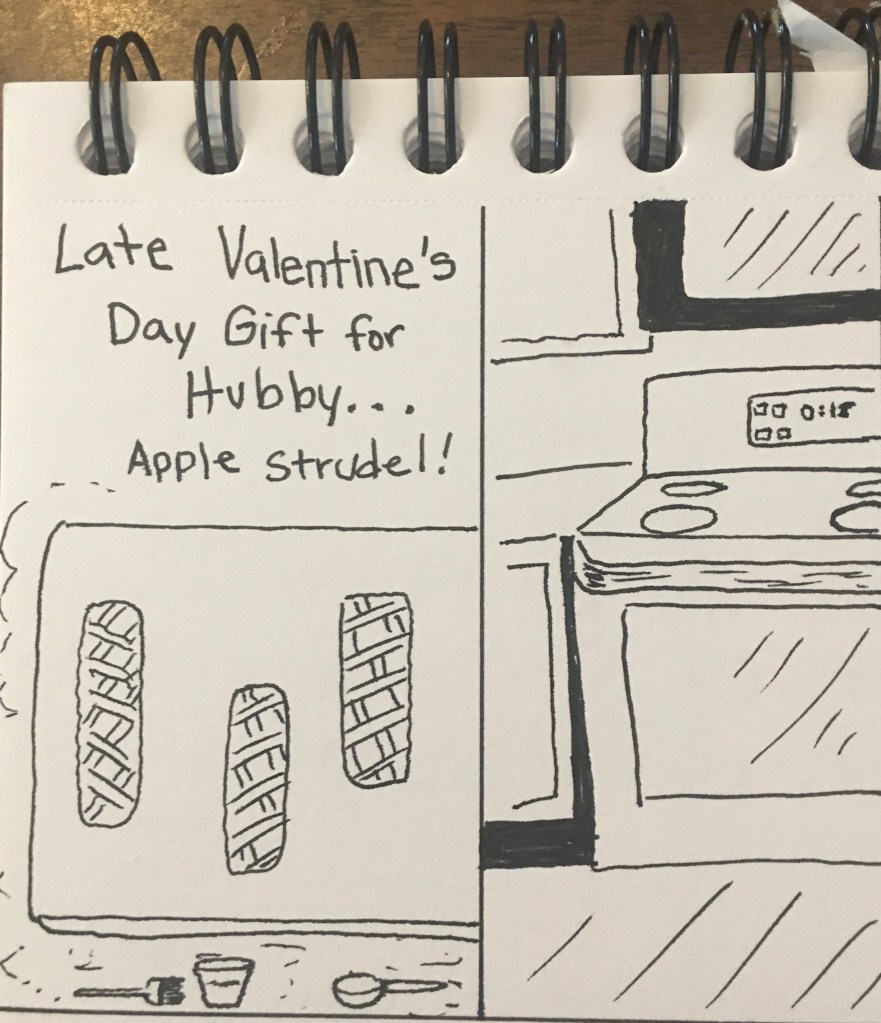 Late Valentine's
Day Gift for
Hubby...
Apple Strudel!
0:18